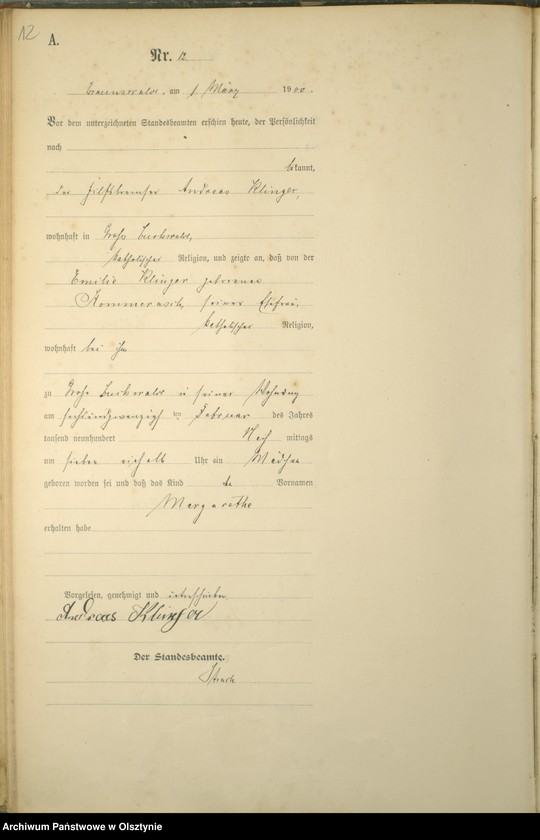 12
A.
Nr. 12
Braunswalde, am 1. März 1900.
Vor dem unterzeichneten Standesbeamten erschien heute, der Persönlichkeit
nach
bekannt,
der Hilfsbremser Andreas Klinger,
wohnhaft in Groß Buchwalde,
katholischer Religion, und zeigte an, daß von der
Emilie Klinger geborenen
seiner Ehefrau,
katholischer Religion,
wohnhaft bei ihm
zu Groß Buchwalde in seiner Wohnung
am sechsundzwanzigsten Februar des Jahres
tausend neunhundert Nachmittags
um sieben einhalb Uhr ein Mädchen
geboren worden sei und daß das Kind den Vornamen
Margarethe
erhalten habe
Vorgelesen, genehmigt und unterschrieben
Andreas Klinger
Der Standesbeamte.
Archiwum Państwowe w Olsztynie